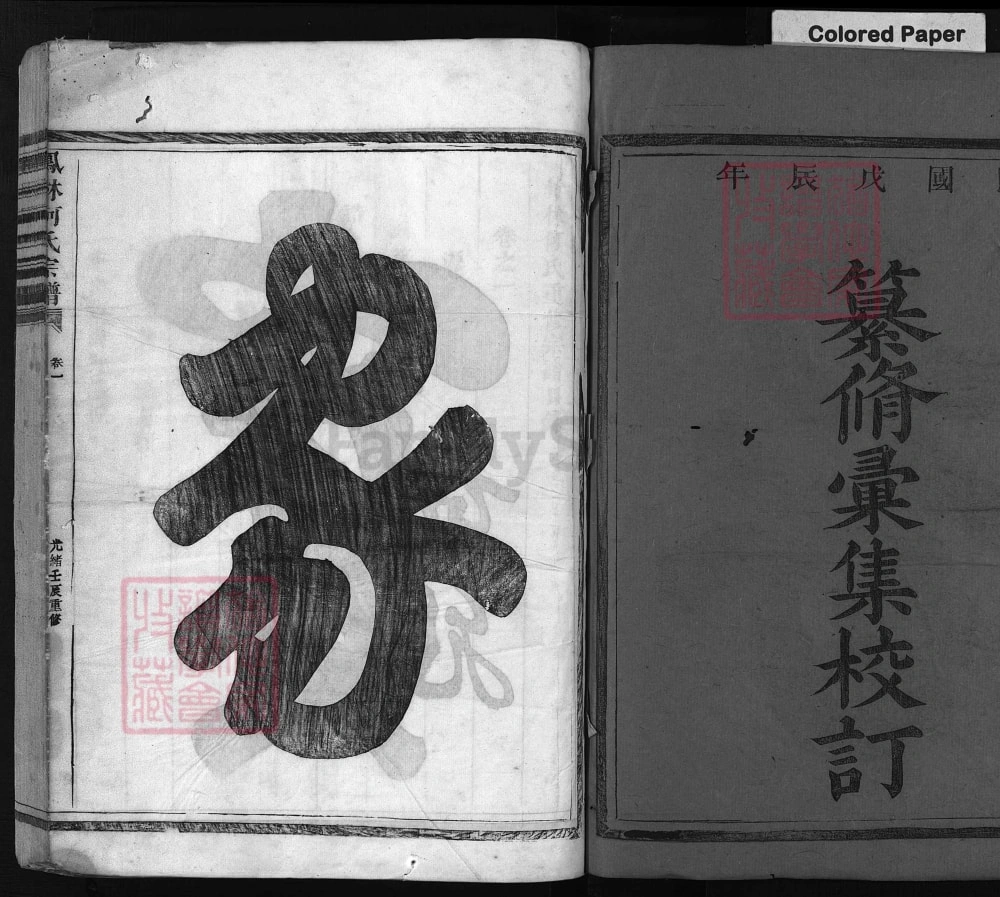 Colored Paper
國戊辰年
纂修彙集校訂
家
鳳林何氏宗譜
卷一
光緒壬辰重修